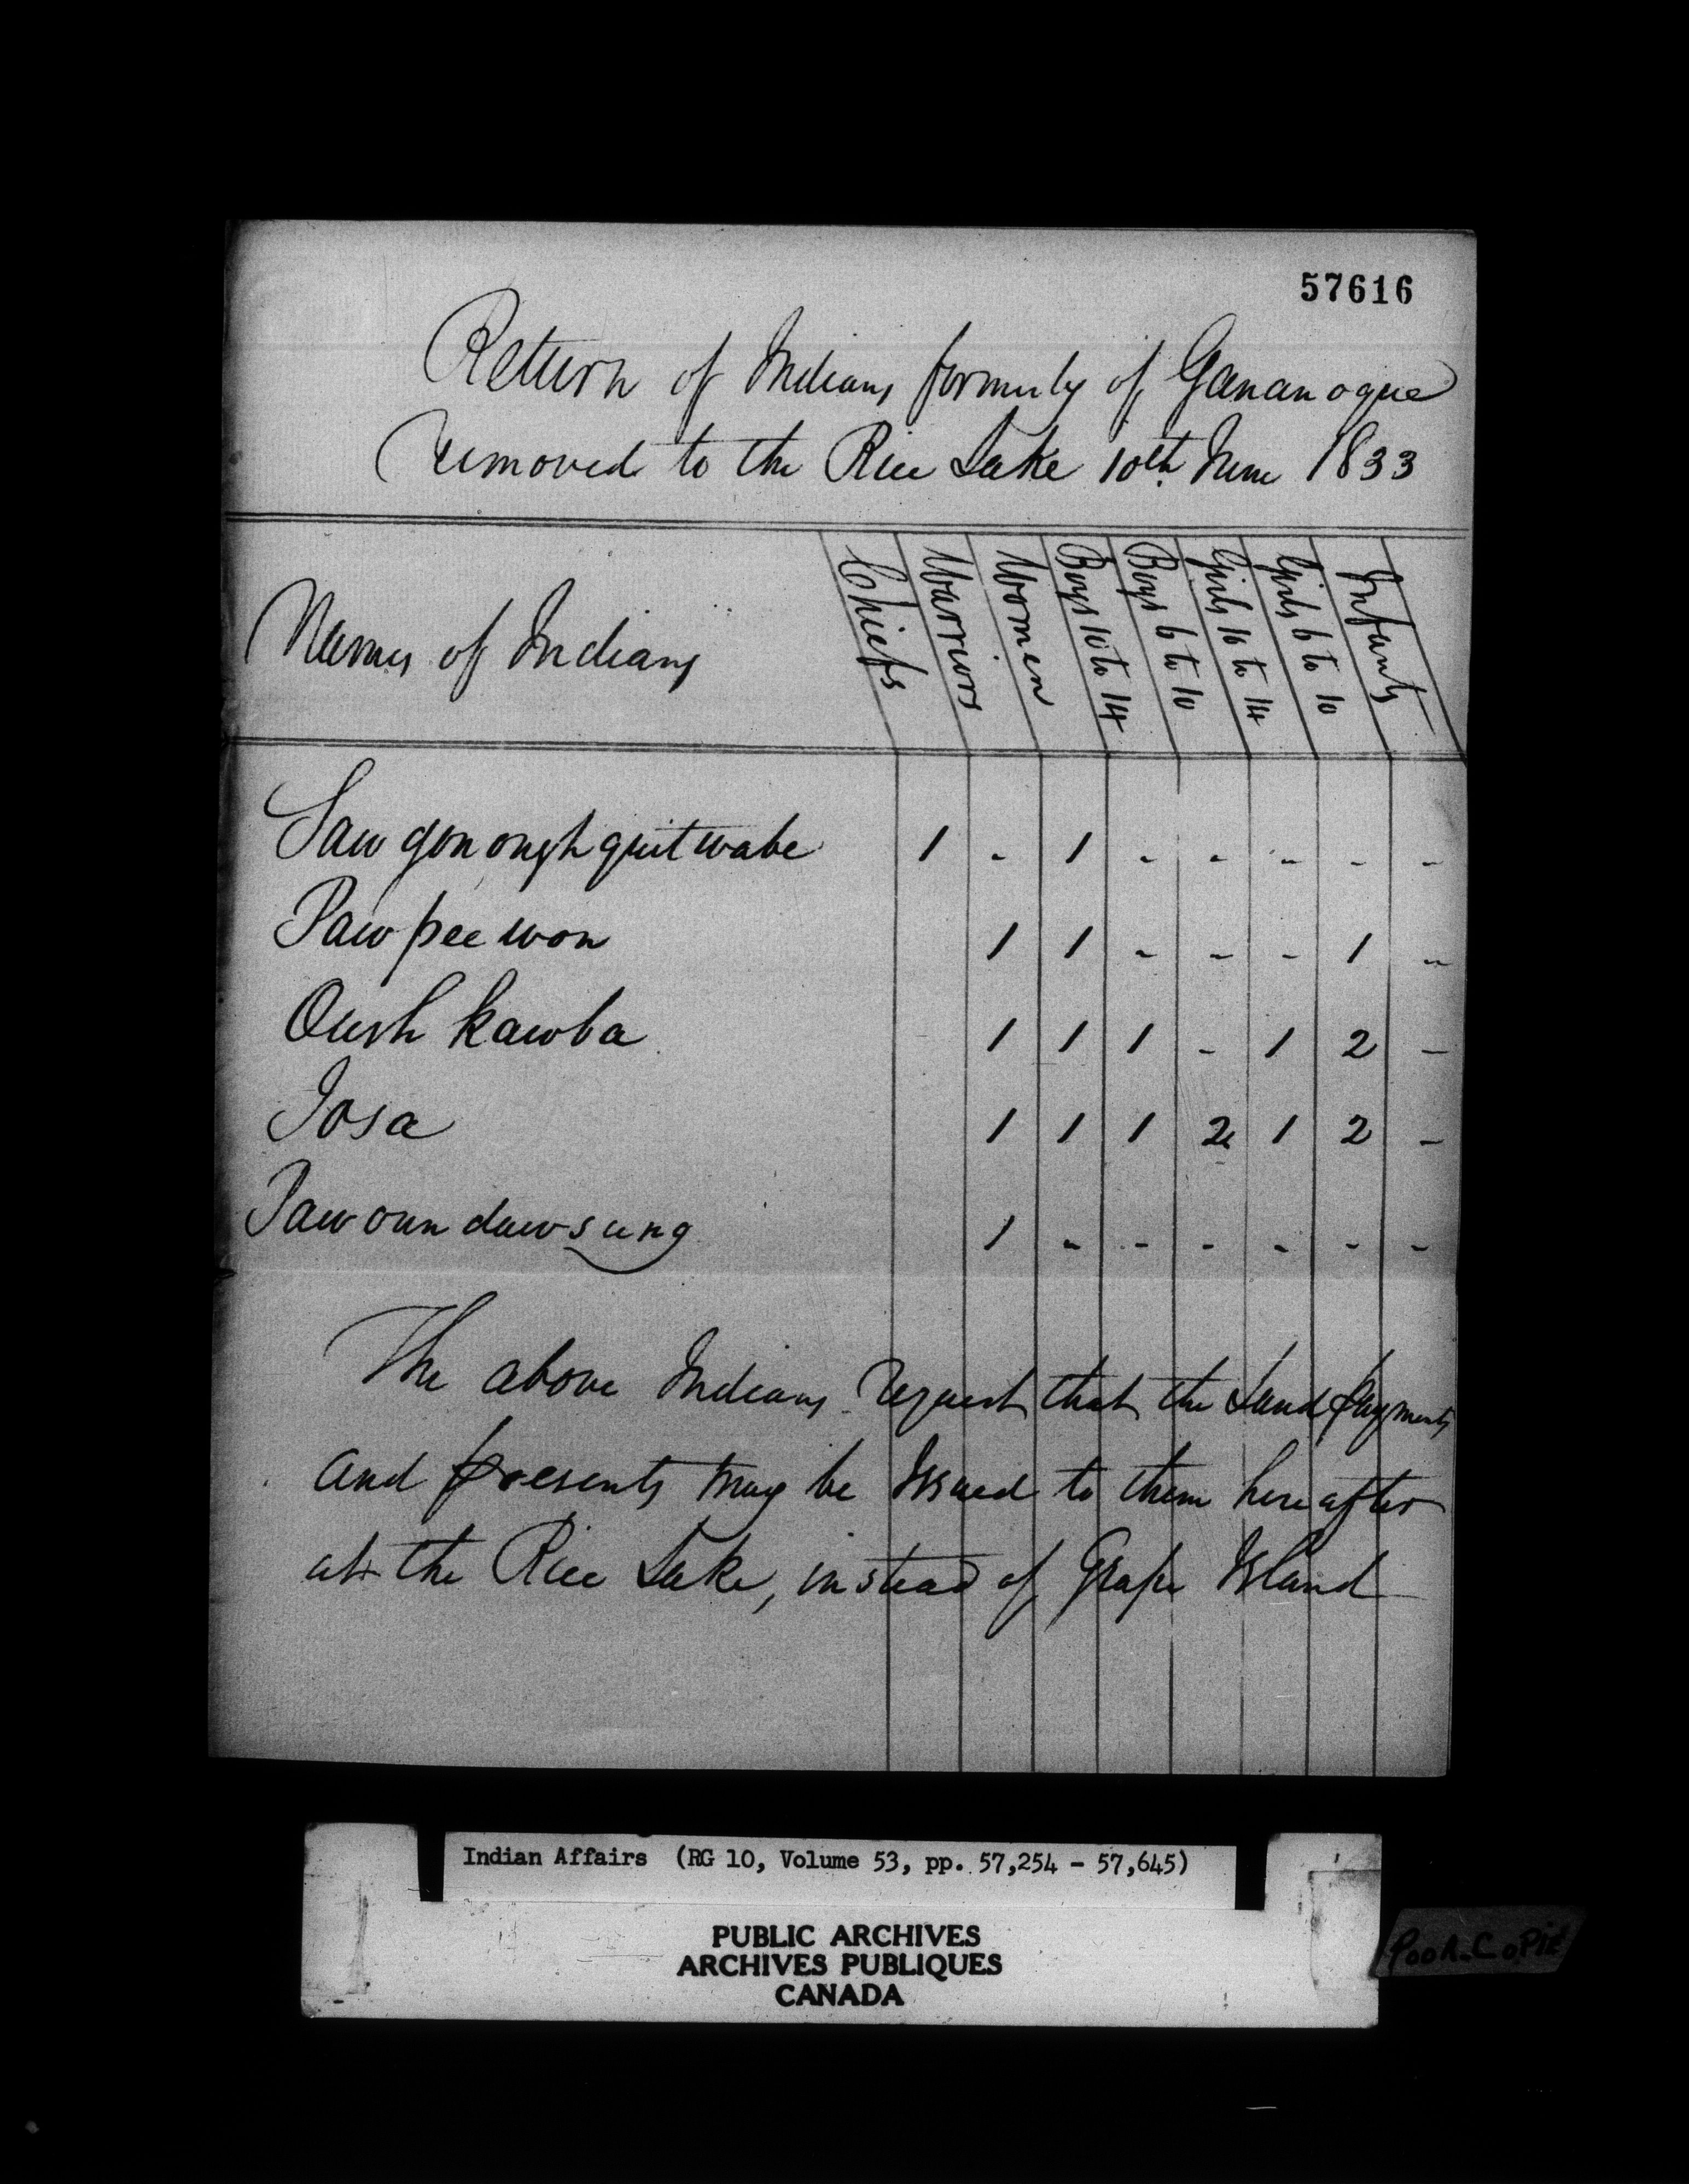 57616
Return of Indians formerly of Gananoque
removed to the Rice Lake 10th June 1833
Names of Indians Chiefs Warriors Women Boys 10 to 14 Boys 6 to 10 Girls 10 to 14 Girls 6 to 10 Infants
Saw gon ough quit wabe 1 - 1 - - - - -
Paw pee won 1 1 - - - 1 -
Oush kawba 1 1 1 - 1 2 -
Josa 1 1 1 2 1 2 -
Jaw oun daw sung 1 - - - - - -
The above Indians request that the Land payments
and presents may be Issued to them hereafter
at the Rice Lake, instead of Grape Island
Indian Affairs (RG 10, Volume 53, pp. 57,254 - 57,645)
PUBLIC ARCHIVES
ARCHIVES PUBLIQUES
CANADA
POOR COPIE